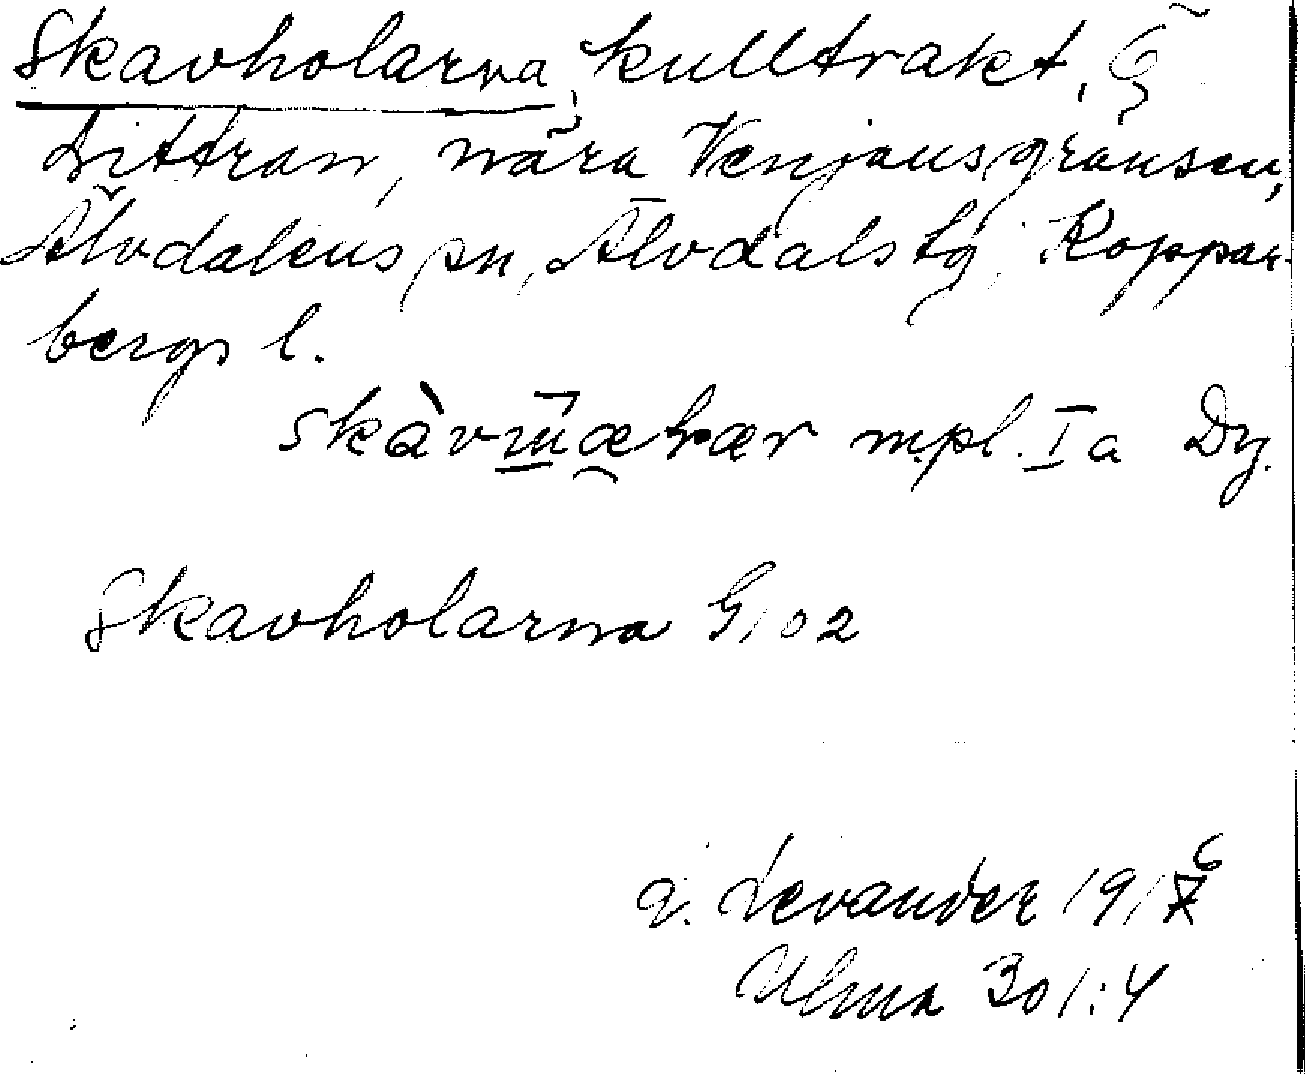 Skavholarna, kulltrakt, Ö
Dittran, nära Venjansgränsen,
Älvdalens sn, Älvdals tg, Koppar-
bergs l.
mpl. Ia Dy.
Skavholarna G 102
L. Levander 1916
Ulma 301:4